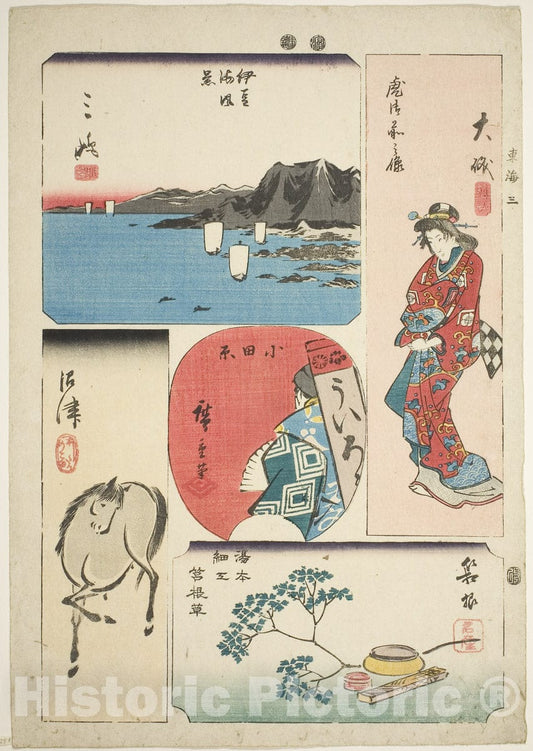 大磯
虎御前之像
東海三
伊豆
海風
景
三嶋
小田原
うゐろ
廣重筆
沼津
箱根
湯本
細工
筥根草
Historic Pictoric®